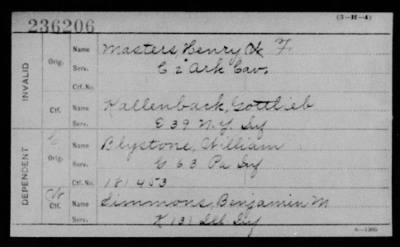 236206
(3-H-4)
INVALID
Orig.
Name Masters, Henry F.
Serv. C 2 Ark Cav.
Ctf. No.
Ctf.
Name Kallenback, Gottlieb
Serv. E 39 N.Y. Inf
DEPENDENT
Orig.
Name Blystone, William
Serv. G 63 Pa Inf
Ctf. No. 181453
Ctf.
Name Simmons, Benjamin M
Serv. K 131 Ill Inf